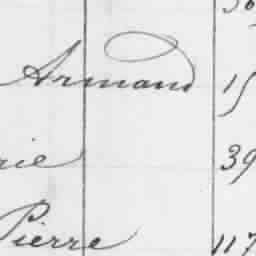 Armand 15
rie 39
Pierre 117